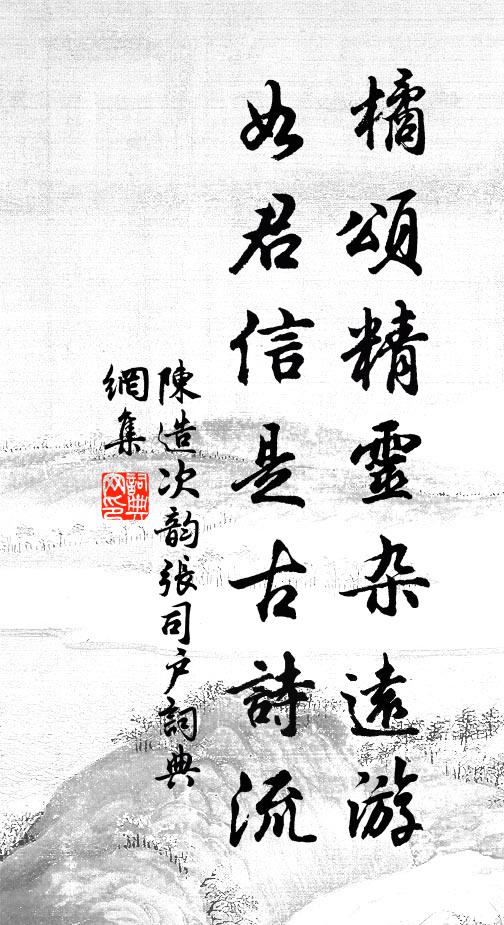 橘頌精靈杂遠游
如君信是古詩流
陳造次韵張司户詞典
網集
詞典
网印